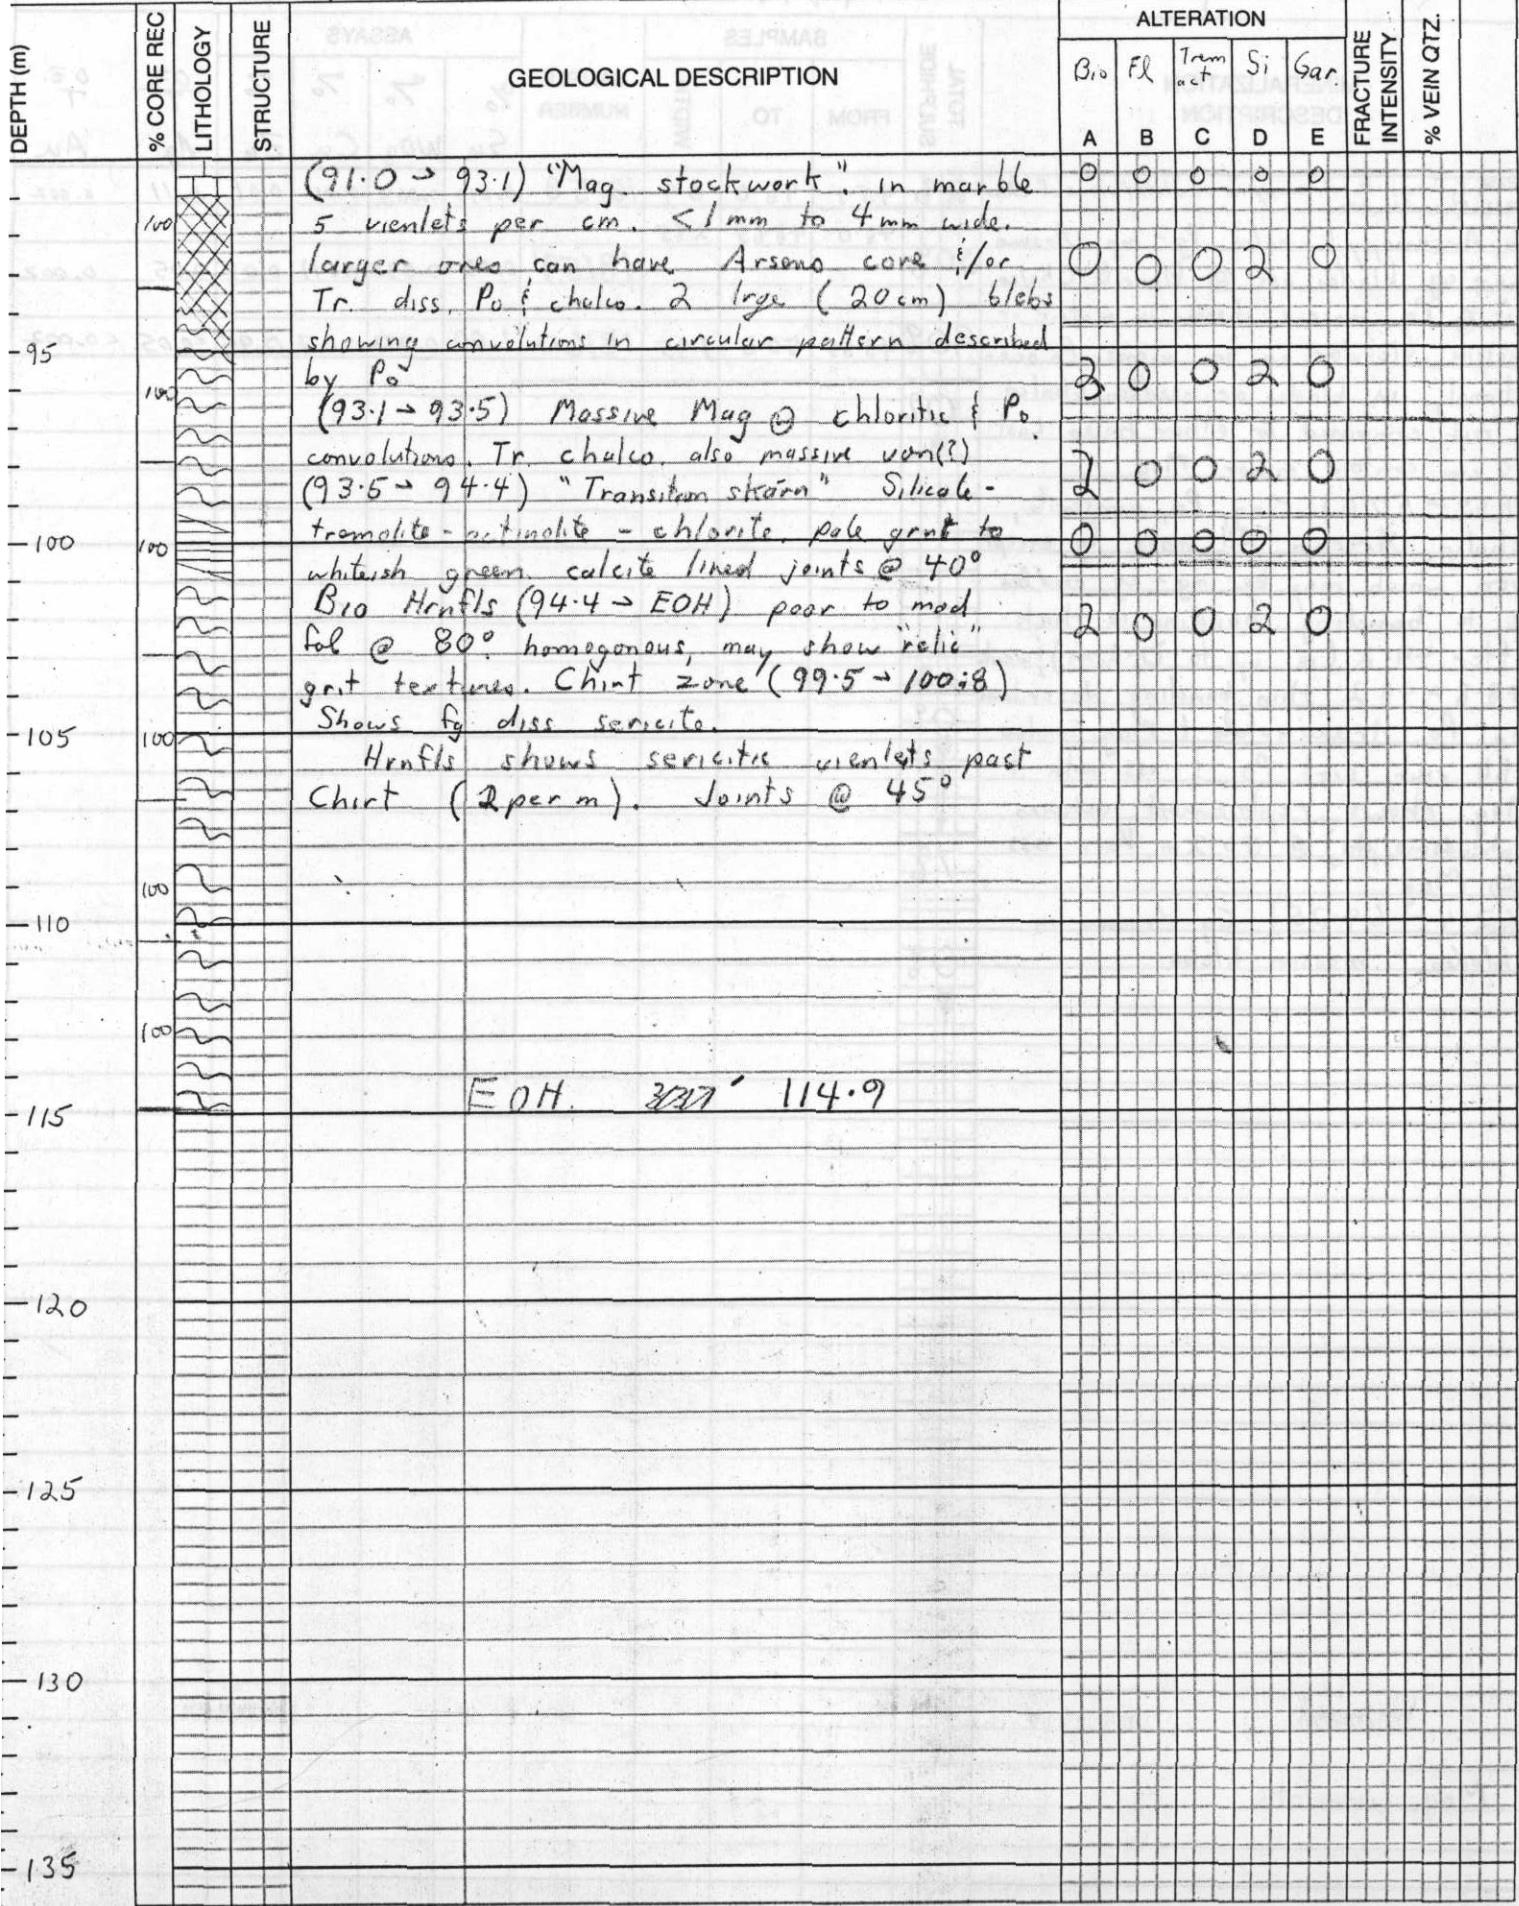 DEPTH (m)
% CORE REC
LITHOLOGY
STRUCTURE
GEOLOGICAL DESCRIPTION
ALTERATION
Bio Fl Trem act Si Gar.
A B C D E
FRACTURE INTENSITY
% VEIN QTZ.
(91.0 → 93.1) "Mag. stockwork". in marble
0 0 0 0 0
100
5 vienlets per cm. <1mm to 4mm wide.
larger ones can have Arseno core &/or
0 0 0 2 0
Tr. diss. Po & chalco. 2 lrge (20cm) blebs
showing convolutions in circular pattern described
95
by Po
2 0 0 2 0
100
(93.1 → 93.5) Massive Mag @ chloritic & Po.
convolutions. Tr. chalco. also massive (?)
2 0 0 2 0
(93.5 → 94.4) "Transition skarn" Silicate -
tremolite - actinolite - chlorite. pale grnt to
100
100
0 0 0 0 0
whiteish green. calcite lined joints @ 40°
Bio Hrnfls (94.4 → EOH) poor to mod
2 0 0 2 0
fol @ 80° homogonous, may show "relic"
grit textures. Chirt zone (99.5 → 100.8)
Shows fg diss sericite.
105
100
Hrnfls shows sericitic vienlets past
Chirt (2 per m). Joints @ 45°
100
110
100
EOH. 114.9
115
120
125
130
135